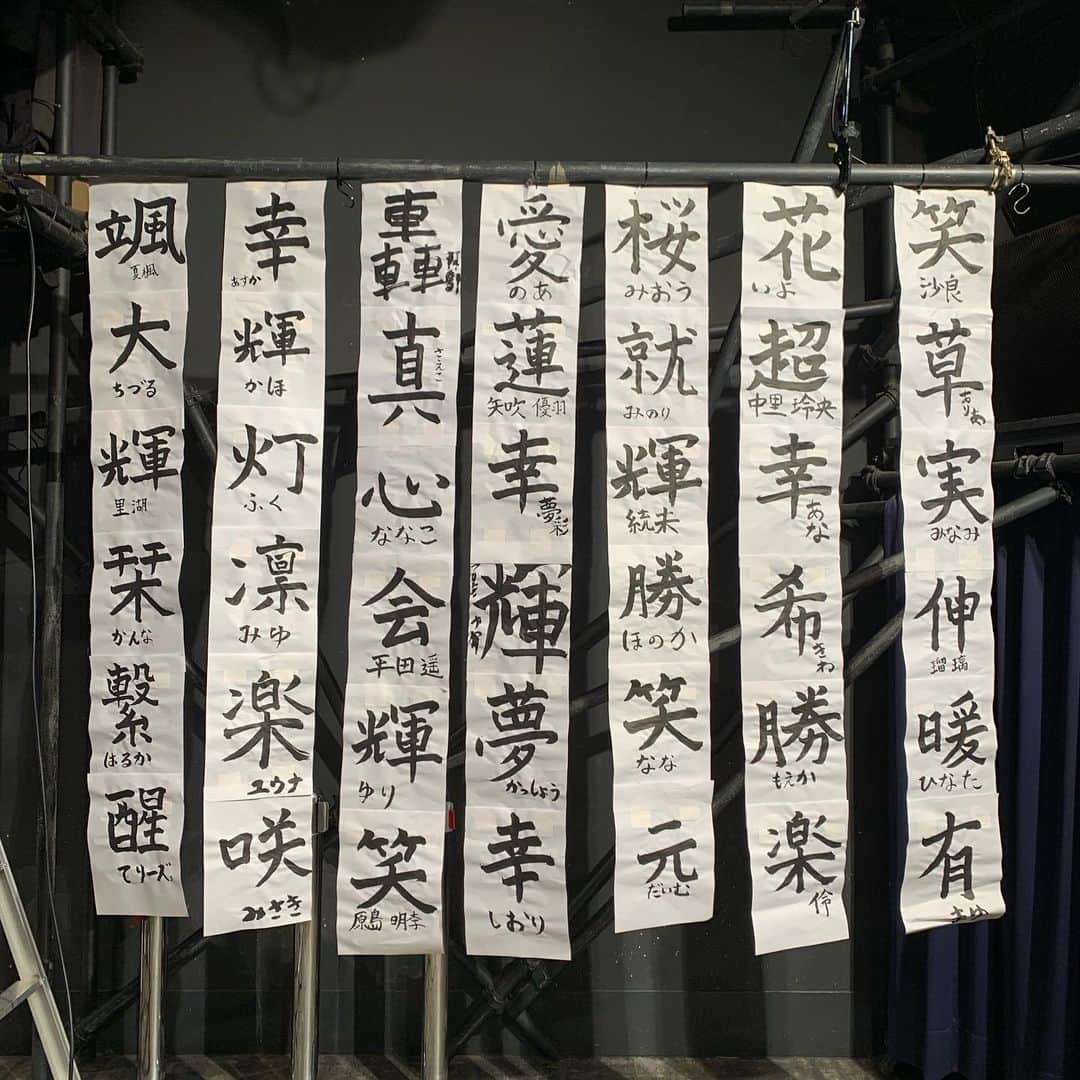 笑
沙良
草
ありあ
実
みなみ
伸
瑠璃
暖
ひなた
有
さゆ
花
いよ
超
中里 玲央
幸
あな
希
きわ
勝
もえか
楽
伶
桜
みおう
就
みのり
輝
続未
勝
ほのか
笑
なな
元
だいむ
愛
のあ
蓮
矢吹 優羽
幸
夢彩
輝
夢
かっしょう
幸
しおり
轟
真
さえこ
心
ななこ
会
平田 遥
輝
ゆり
笑
原島 明李
幸
あすか
輝
かほ
灯
ふく
凛
みゆ
楽
ユウナ
咲
みさき
颯
夏楓
大
ちづる
輝
里湖
栞
かんな
繋
はるか
醒
てりーズ。